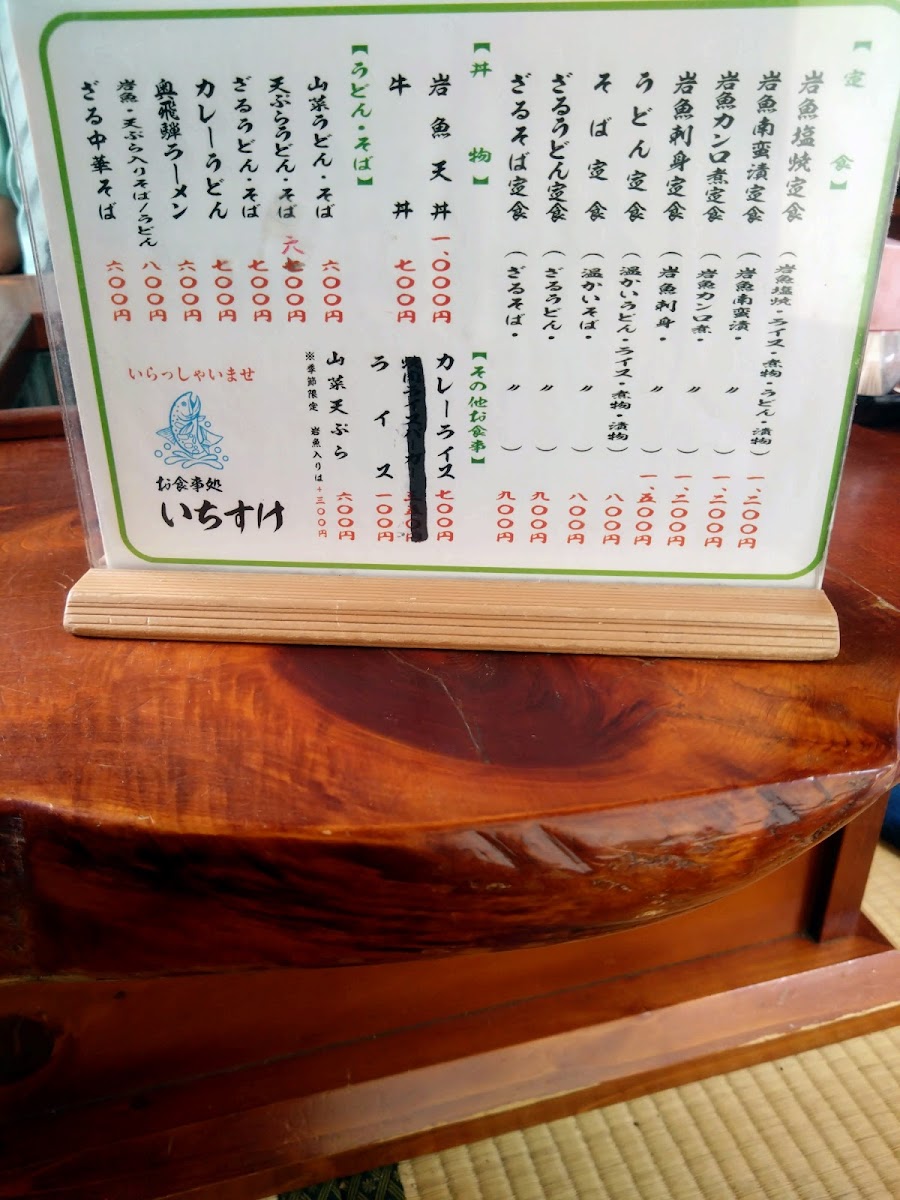 【定食】
岩魚塩焼定食（岩魚塩焼・ライス・煮物・うどん・漬物）一、二〇〇円
岩魚南蛮漬定食（岩魚南蛮漬・〃）一、二〇〇円
岩魚カンロ煮定食（岩魚カンロ煮・〃）一、二〇〇円
岩魚刺身定食（岩魚刺身・〃）一、五〇〇円
うどん定食（温かいうどん・ライス・煮物・漬物）八〇〇円
そば定食（温かいそば・〃）八〇〇円
ざるうどん定食（ざるうどん・〃）九〇〇円
ざるそば定食（ざるそば・〃）九〇〇円
【丼物】
岩魚天丼 一、〇〇〇円
牛丼 七〇〇円
【その他お食事】
カレーライス 七〇〇円
ライス 一〇〇円
山菜天ぷら 六〇〇円
※季節限定 岩魚入りは＋三〇〇円
【うどん・そば】
山菜うどん・そば 六〇〇円
天ぷらうどん・そば 六七〇〇円
ざるうどん・そば 七〇〇円
カレーうどん 七〇〇円
奥飛騨ラーメン 六〇〇円
岩魚・天ぷら入りそば/うどん 八〇〇円
ざる中華そば 六〇〇円
いらっしゃいませ
お食事処
いちすけ